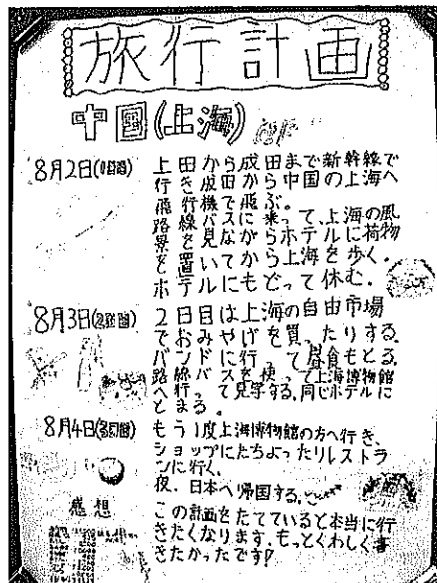 旅行計画
中国(上海)
8月2日(1日目)
上田から成田まで新幹線で
行き成田から中国の上海へ
飛行機で飛ぶ。
路線バスに乗って、上海の風
景を見ながらホテルに荷物
を置いてから上海を歩く。
ホテルにもどって休む。
8月3日(2日目)
2日目は上海の自由市場
でおみやげを買ったりする。
バンドに行って昼食もとる。
路線バスを使って上海博物館
へ行って見学する。同じホテルに
とまる。
8月4日(3日目)
もう1度上海博物館の方へ行き、
ショップにたちよったりレストラ
ンに行く。
夜、日本へ帰国する。
感想
この計画をたてていると本当に行
きたくなります。もっとくわしく書
きたかったです!